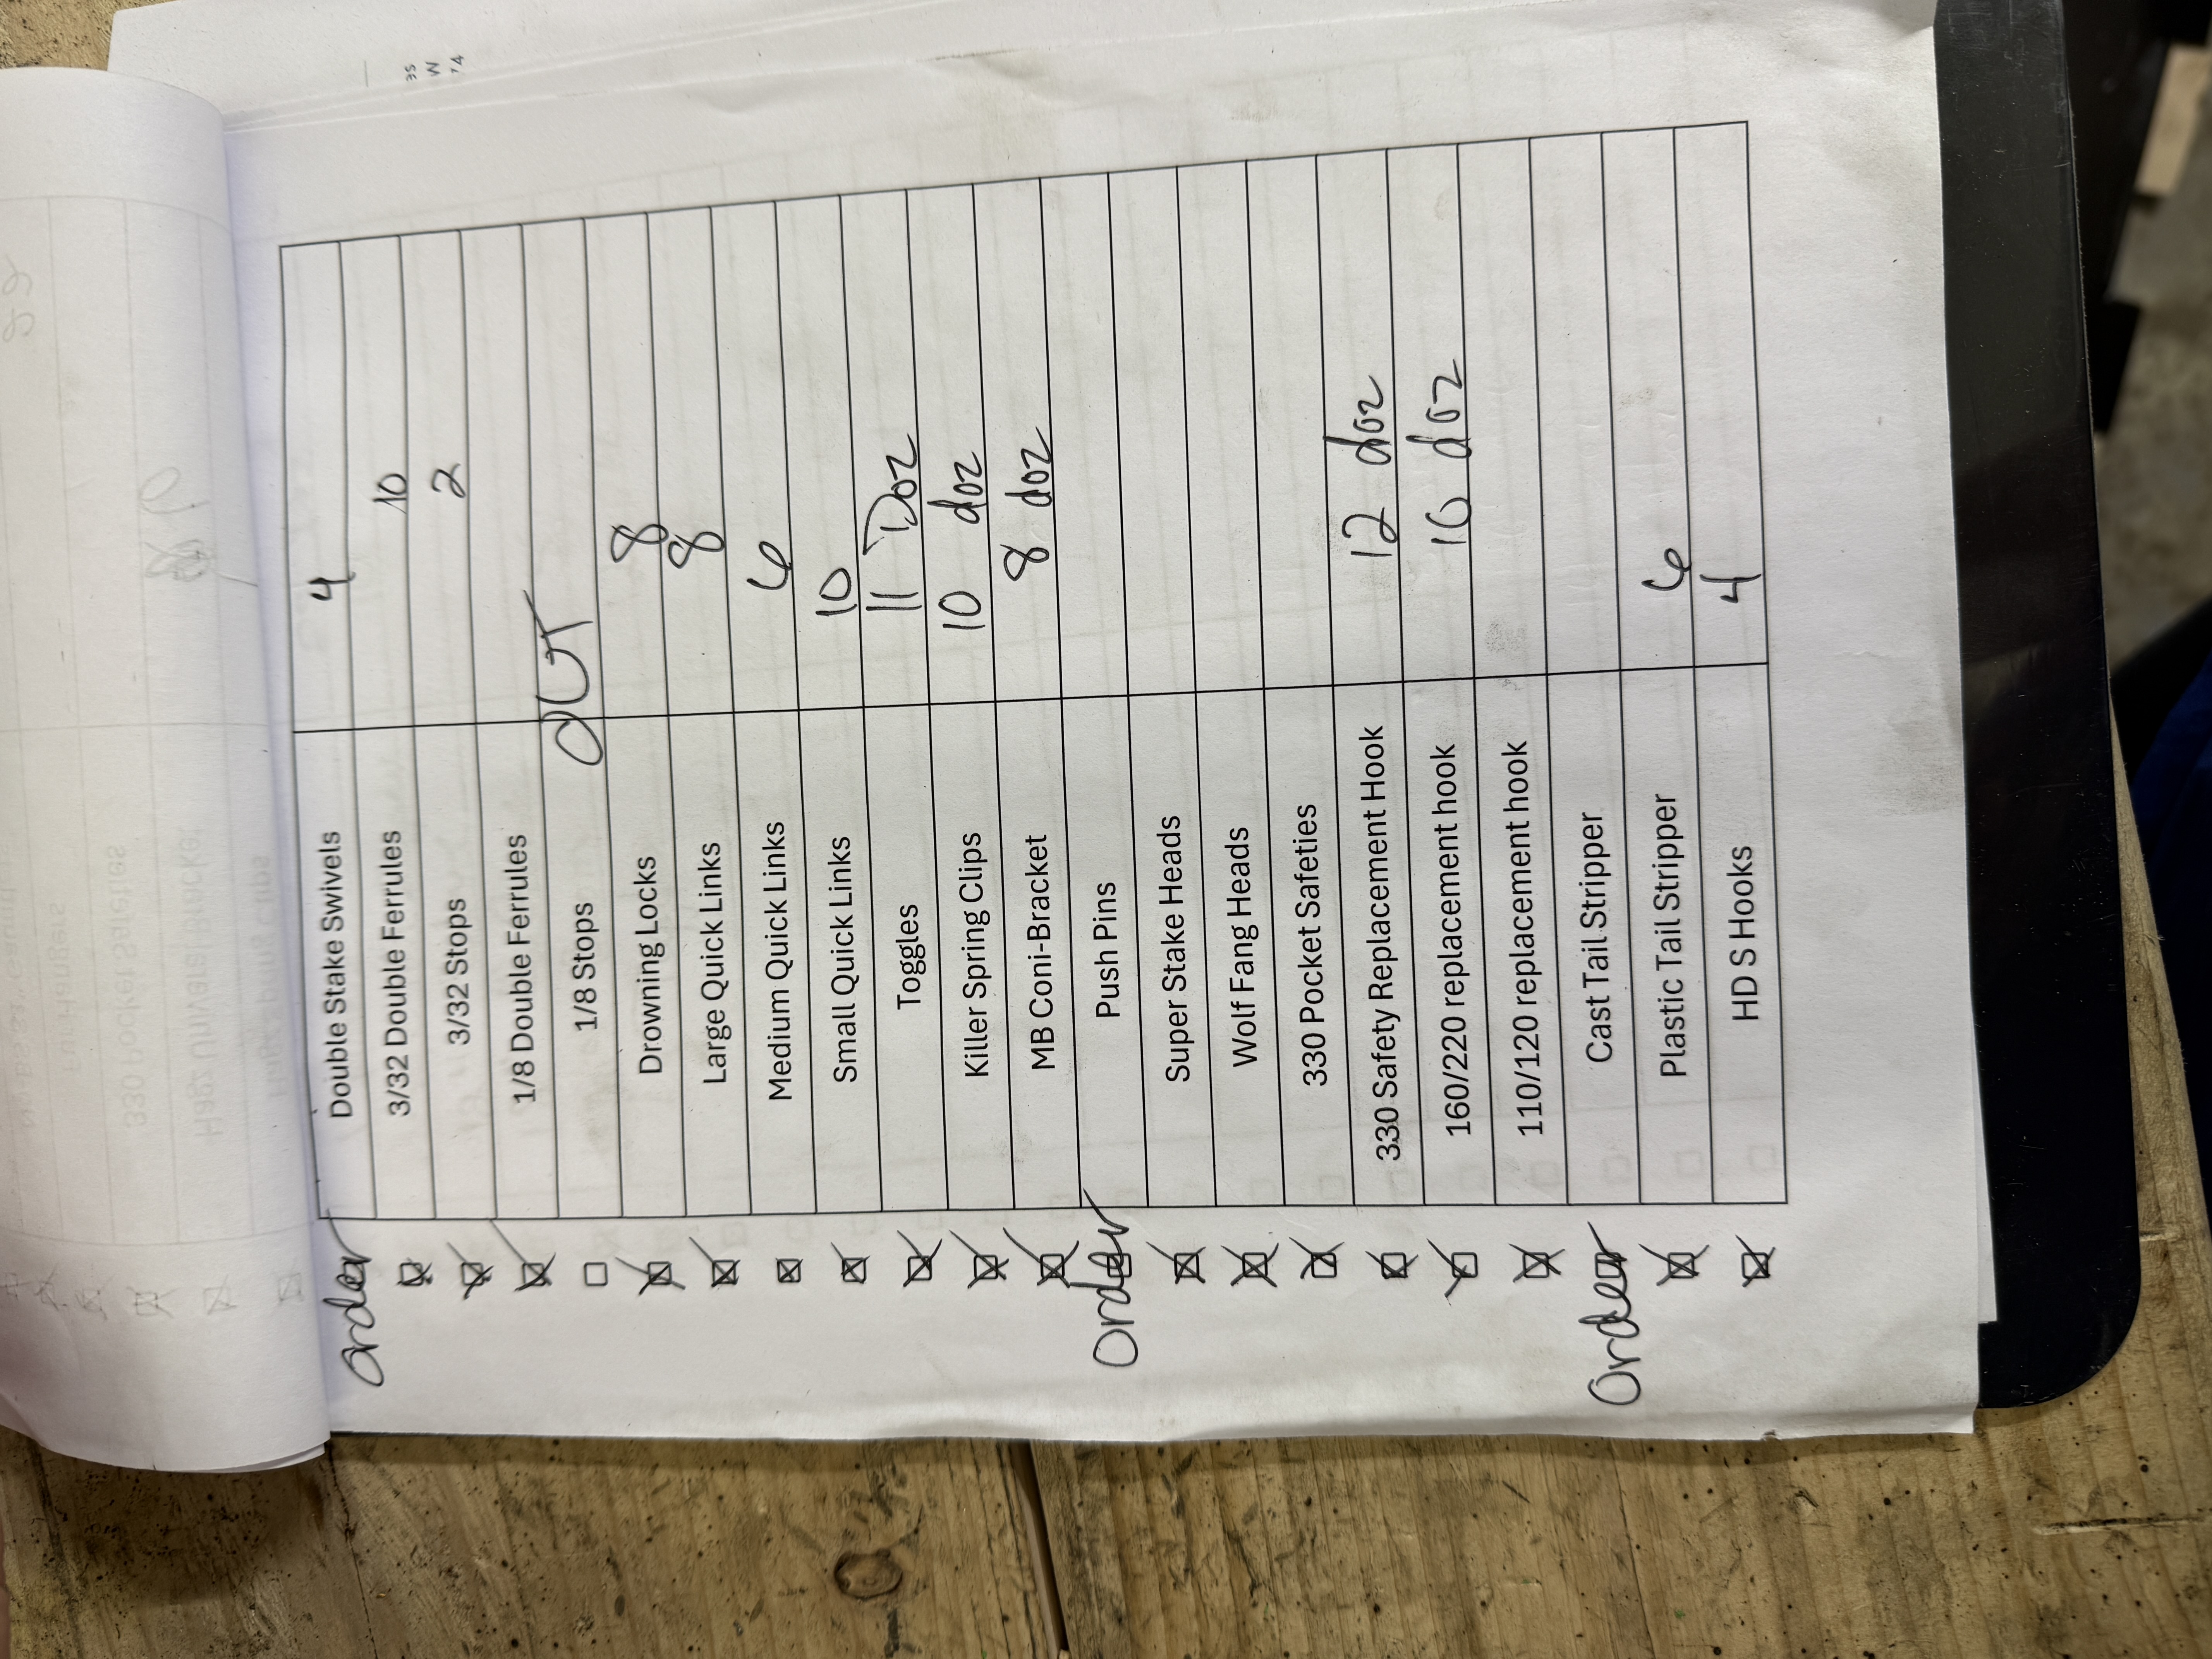 Order Double Stake Swivels 4
3/32 Double Ferrules 10
3/32 Stops 2
1/8 Double Ferrules
1/8 Stops OUT
Drowning Locks 8
Large Quick Links 8
Medium Quick Links 6
Small Quick Links 10
Toggles 11 Doz
Killer Spring Clips 10 doz
MB Coni-Bracket 8 doz
Order Push Pins
Super Stake Heads
Wolf Fang Heads
330 Pocket Safeties
330 Safety Replacement Hook 12 doz
160/220 replacement hook 10 doz
110/120 replacement hook
Order Cast Tail Stripper
Plastic Tail Stripper 6
HD S Hooks 4